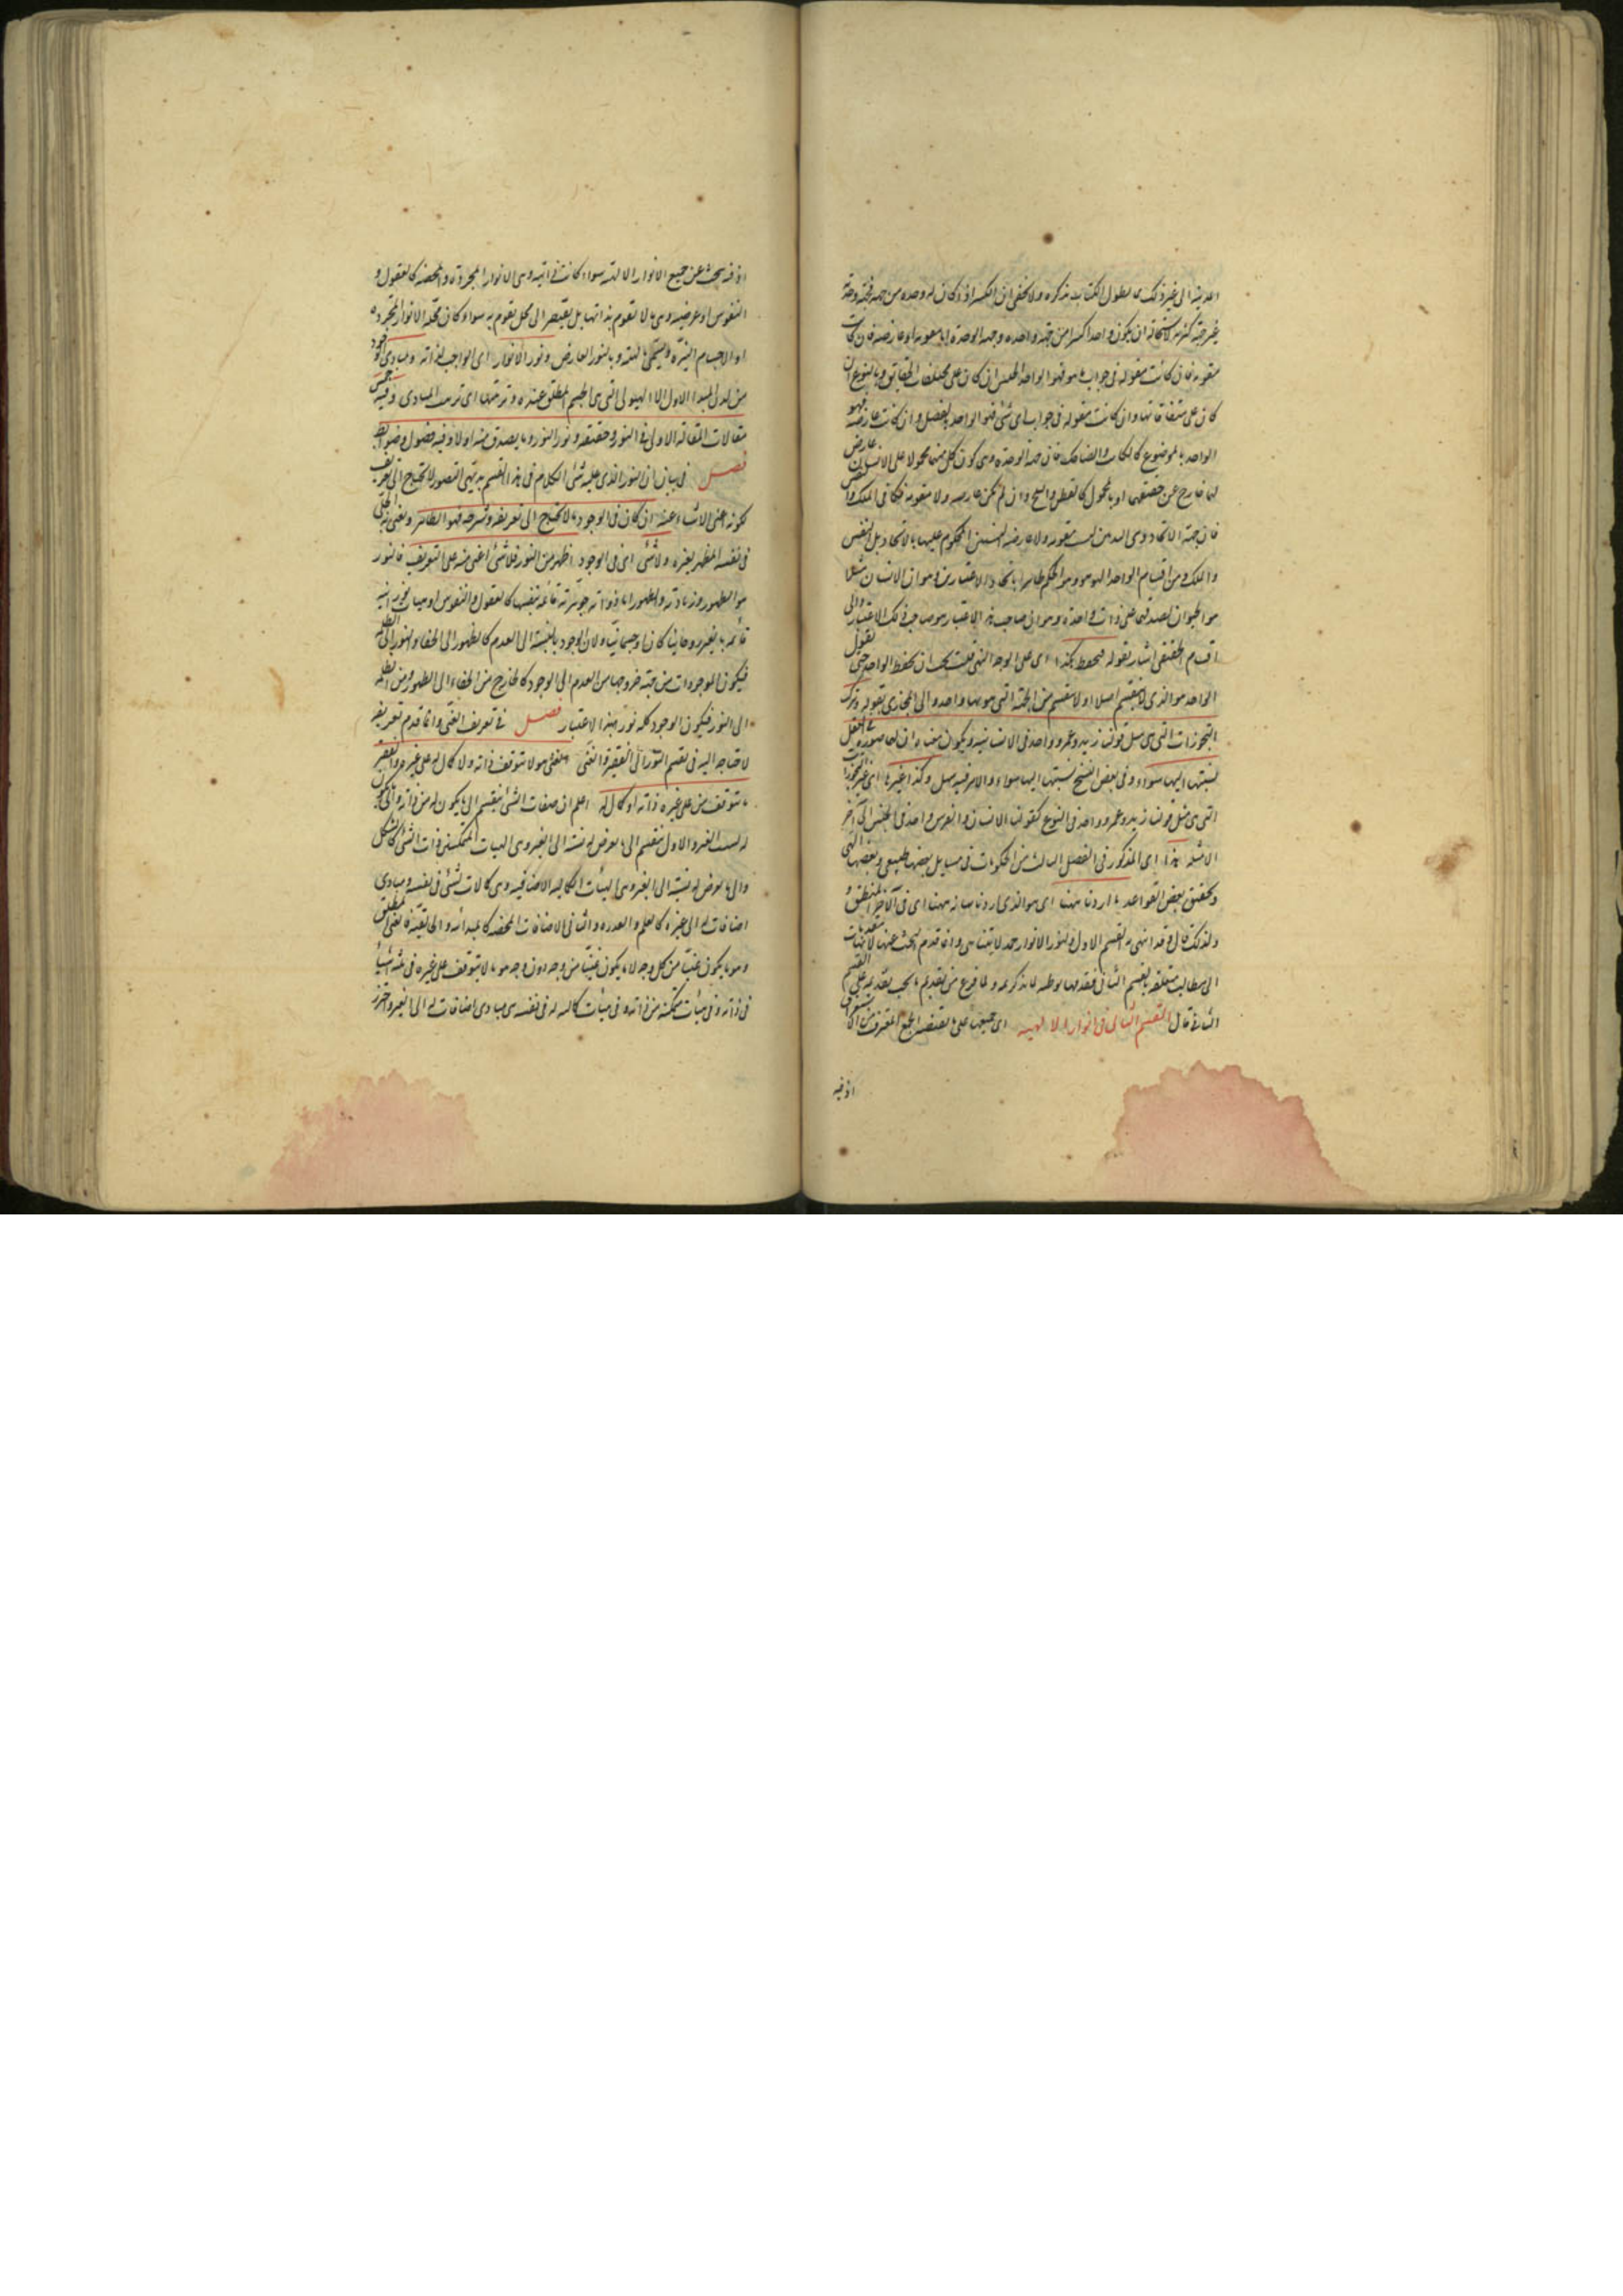 المدينة الى غير ذلك مما يطول الكتاب بذكره ولا يخفى ان الكثير اذا كان له وحدة من جهة فجهة وحدته
غير جهة كثرته لاستحالة ان يكون واحدا كثيرا من جهة واحدة وجهة الوحدة اما مقومة او عارضة فان كانت
مقومة فان كانت مقولة فى جواب ما هو فهو الواحد بالجنس ان كان على مختلفات الحقايق وبالنوع ان
كان على متفقاتها وان كانت مقولة فى جواب اى شئ فهو الواحد بالفصل وان كانت عارضة فهو
الواحد بالموضوع كالكاتب والضاحك فان جهة الوحدة وهى كون كل منهما محمولا على الانسان عارض
لهما خارج عن حقيقتهما او بالمحمول كالقطن والثلج وان لم تكن عارضة ولا مقومة فكما فى الملك والنفس
فان جهة الاتحاد وهى التدبير ليست مقومة ولا عارضة للنسبتين المحكوم عليهما بالاتحاد بل للنفس
والملك ومن اقسام الواحد الهو هو وهو الحكم باتحاد الاعتبارين وهو ان الانسان مثلا
هو الحيوان لصدقهما على ذات واحدة وهو ان صاحب هذا الاعتبار هو صاحب ذلك الاعتبار والى
اقسام الحقيقى اشار بقوله فيحفظ هكذا اى على الوجه الذى قلت يجب ان يحفظ الواحد حتى يقول
الواحد هو الذى لا ينقسم اصلا او لا ينقسم من الجهة التى هو بها واحد والى المجازى بقوله وترك
التجوزات التى هى مثل قولنا زيد وعمرو واحد فى الانسانية ويكون معناه ان لهما صورة فى العقل
نسبتهما اليها سواء وفى بعض النسخ نسبتها اليهما سواء والامر فيه سهل وكذا غيرها اى غير التجوزات
التى هى مثل قولنا زيد وعمرو واحد فى النوع كقولنا الانسان والفرس واحد فى الجنس الى آخر
الامثلة هذا اى المذكور فى الفصل الثالث من الحكومات فى مسايل بعضها طبيعى وبعضها الهى
وتحقيق بعض القواعد ما اردنا ههنا اى هو الذى اردنا بيانه ههنا اى فى آخر المنطق و
ولذلك قال وقد انتهى به القسم الاول ولنور الانوار حمد لا يتناهى وانما قدم البحث عنها لانها مقدمات
الى مطالب متعلقة بالقسم الثانى فقدمها توطية لما ذكره ولما فرغ من تقديم ما يجب تقديمه على القسم
الثانى قال القسم الثانى فى انوار الالهية اى جميعها على ما يقتضيه الجمع المعرف من الاستغراق
اذ فيه
اذ فيه يبحث عن جميع الانوار الالهية سواء كانت ذاتية وهى الانوار المجردة والمحضة كالعقول و
النفوس او عرضية وهى ما لا تقوم بذاتها بل يفتقر الى محل يقوم به سواء كان محله الانوار المجردة
او الاجسام النيرة ويسمى بالهيئة وبالنور العارض ونور الانوار اى الواجب لذاته ومبادى الوجود
من لدن المبدا الاول الا الهيولى التى هى الجسم المطلق عنده وترتيبها اى ترتيب المبادى وفيه خمس
مقالات المقالة الاولى فى النور وحقيقته ونور النور وما يصدر منه اولا وفيه فصول وضوابط
فصل فى بيان ان النور الذى عليه مبنى الكلام فى هذا القسم بديهى التصور لا يحتاج الى تعريف
لكونه اغنى الاشياء عنه ان كان فى الوجود ما لا يحتاج الى تعريفه وشرحه فهو الظاهر ونعنى به الجلى
فى نفسه المظهر لغيره ولا شئ اى فى الوجود اظهر من النور فلا شئ اغنى منه عن التعريف فالنور
هو الظهور وزيادته والظهور اما ذوات جوهرية قائمة بنفسها كالعقول والنفوس او هيئات نورانية
قائمة بالغير روحانيا كان او جسمانيا ولان الوجود بالنسبة الى العدم كالظهور الى الخفاء والنور الى الظلمة
فيكون الموجودات من جهة خروجها من العدم الى الوجود كالخارج من الخفاء الى الظهور ومن الظلمة
الى النور فيكون الوجود كله نورا بهذا الاعتبار فصل فى تعريف الغنى وانما قدم تعريفه
لاحتياجه اليه فى تقسيم النور الى الفقير والغنى الغنى هو ما لا يتوقف ذاته ولا كمال له على غيره والفقير
ما يتوقف منه على غيره ذاته او كمال له اعلم ان صفات الشئ ينقسم الى ما يكون له من ذاته والى ما يكون
له بسبب الغير والاول ينقسم الى ما يعرض له نسبة الى الغير وهى الهيئات المتمكنة فى ذات الشئ كالشكل
والى ما يعرض له نسبة الى الغير وهى الهيئات الكمالية الاضافية وهى كمالات للشئ فى نفسه ومبادى
اضافات له الى غيره كالعلم والقدرة والثانى الاضافات المحضة كالمبدائية والخالقية فالغنى المطلق
وهو ما يكون غنيا من كل وجه لا ما يكون غنيا من وجه دون وجه هو ما لا يتوقف على غيره فى ثلثة اشياء
فى ذاته وفى هيئات متمكنة من ذاته وفى هيئات كمالية له فى نفسه هى مبادى اضافات له الى الغير واحترز